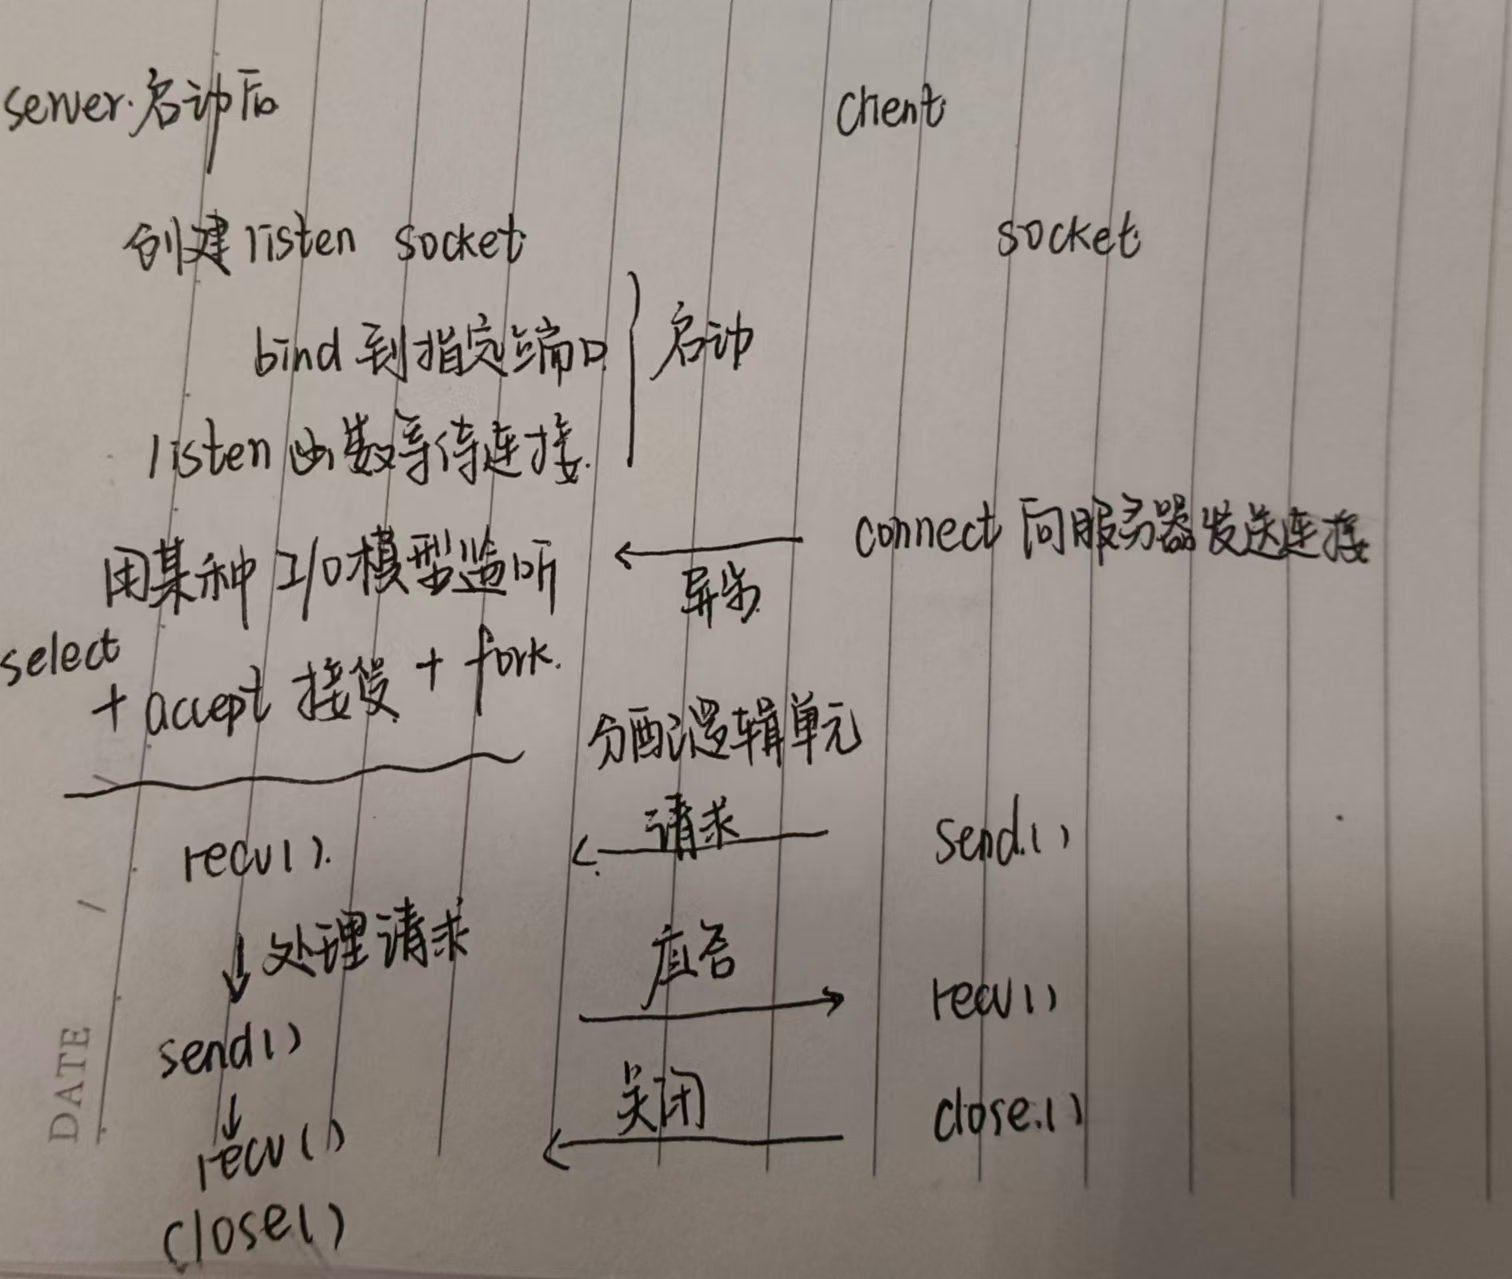 server.启动后
client
创建listen socket
socket
bind 到指定端口
启动
listen 函数等待连接.
connect 向服务器发送连接
异步
用某种 I/O模型监听
select
+ accept 接受 + fork.
分配逻辑单元
请求
recv().
send.()
处理请求
应答
recv()
send()
关闭
close.()
recv()
close()
DATE /